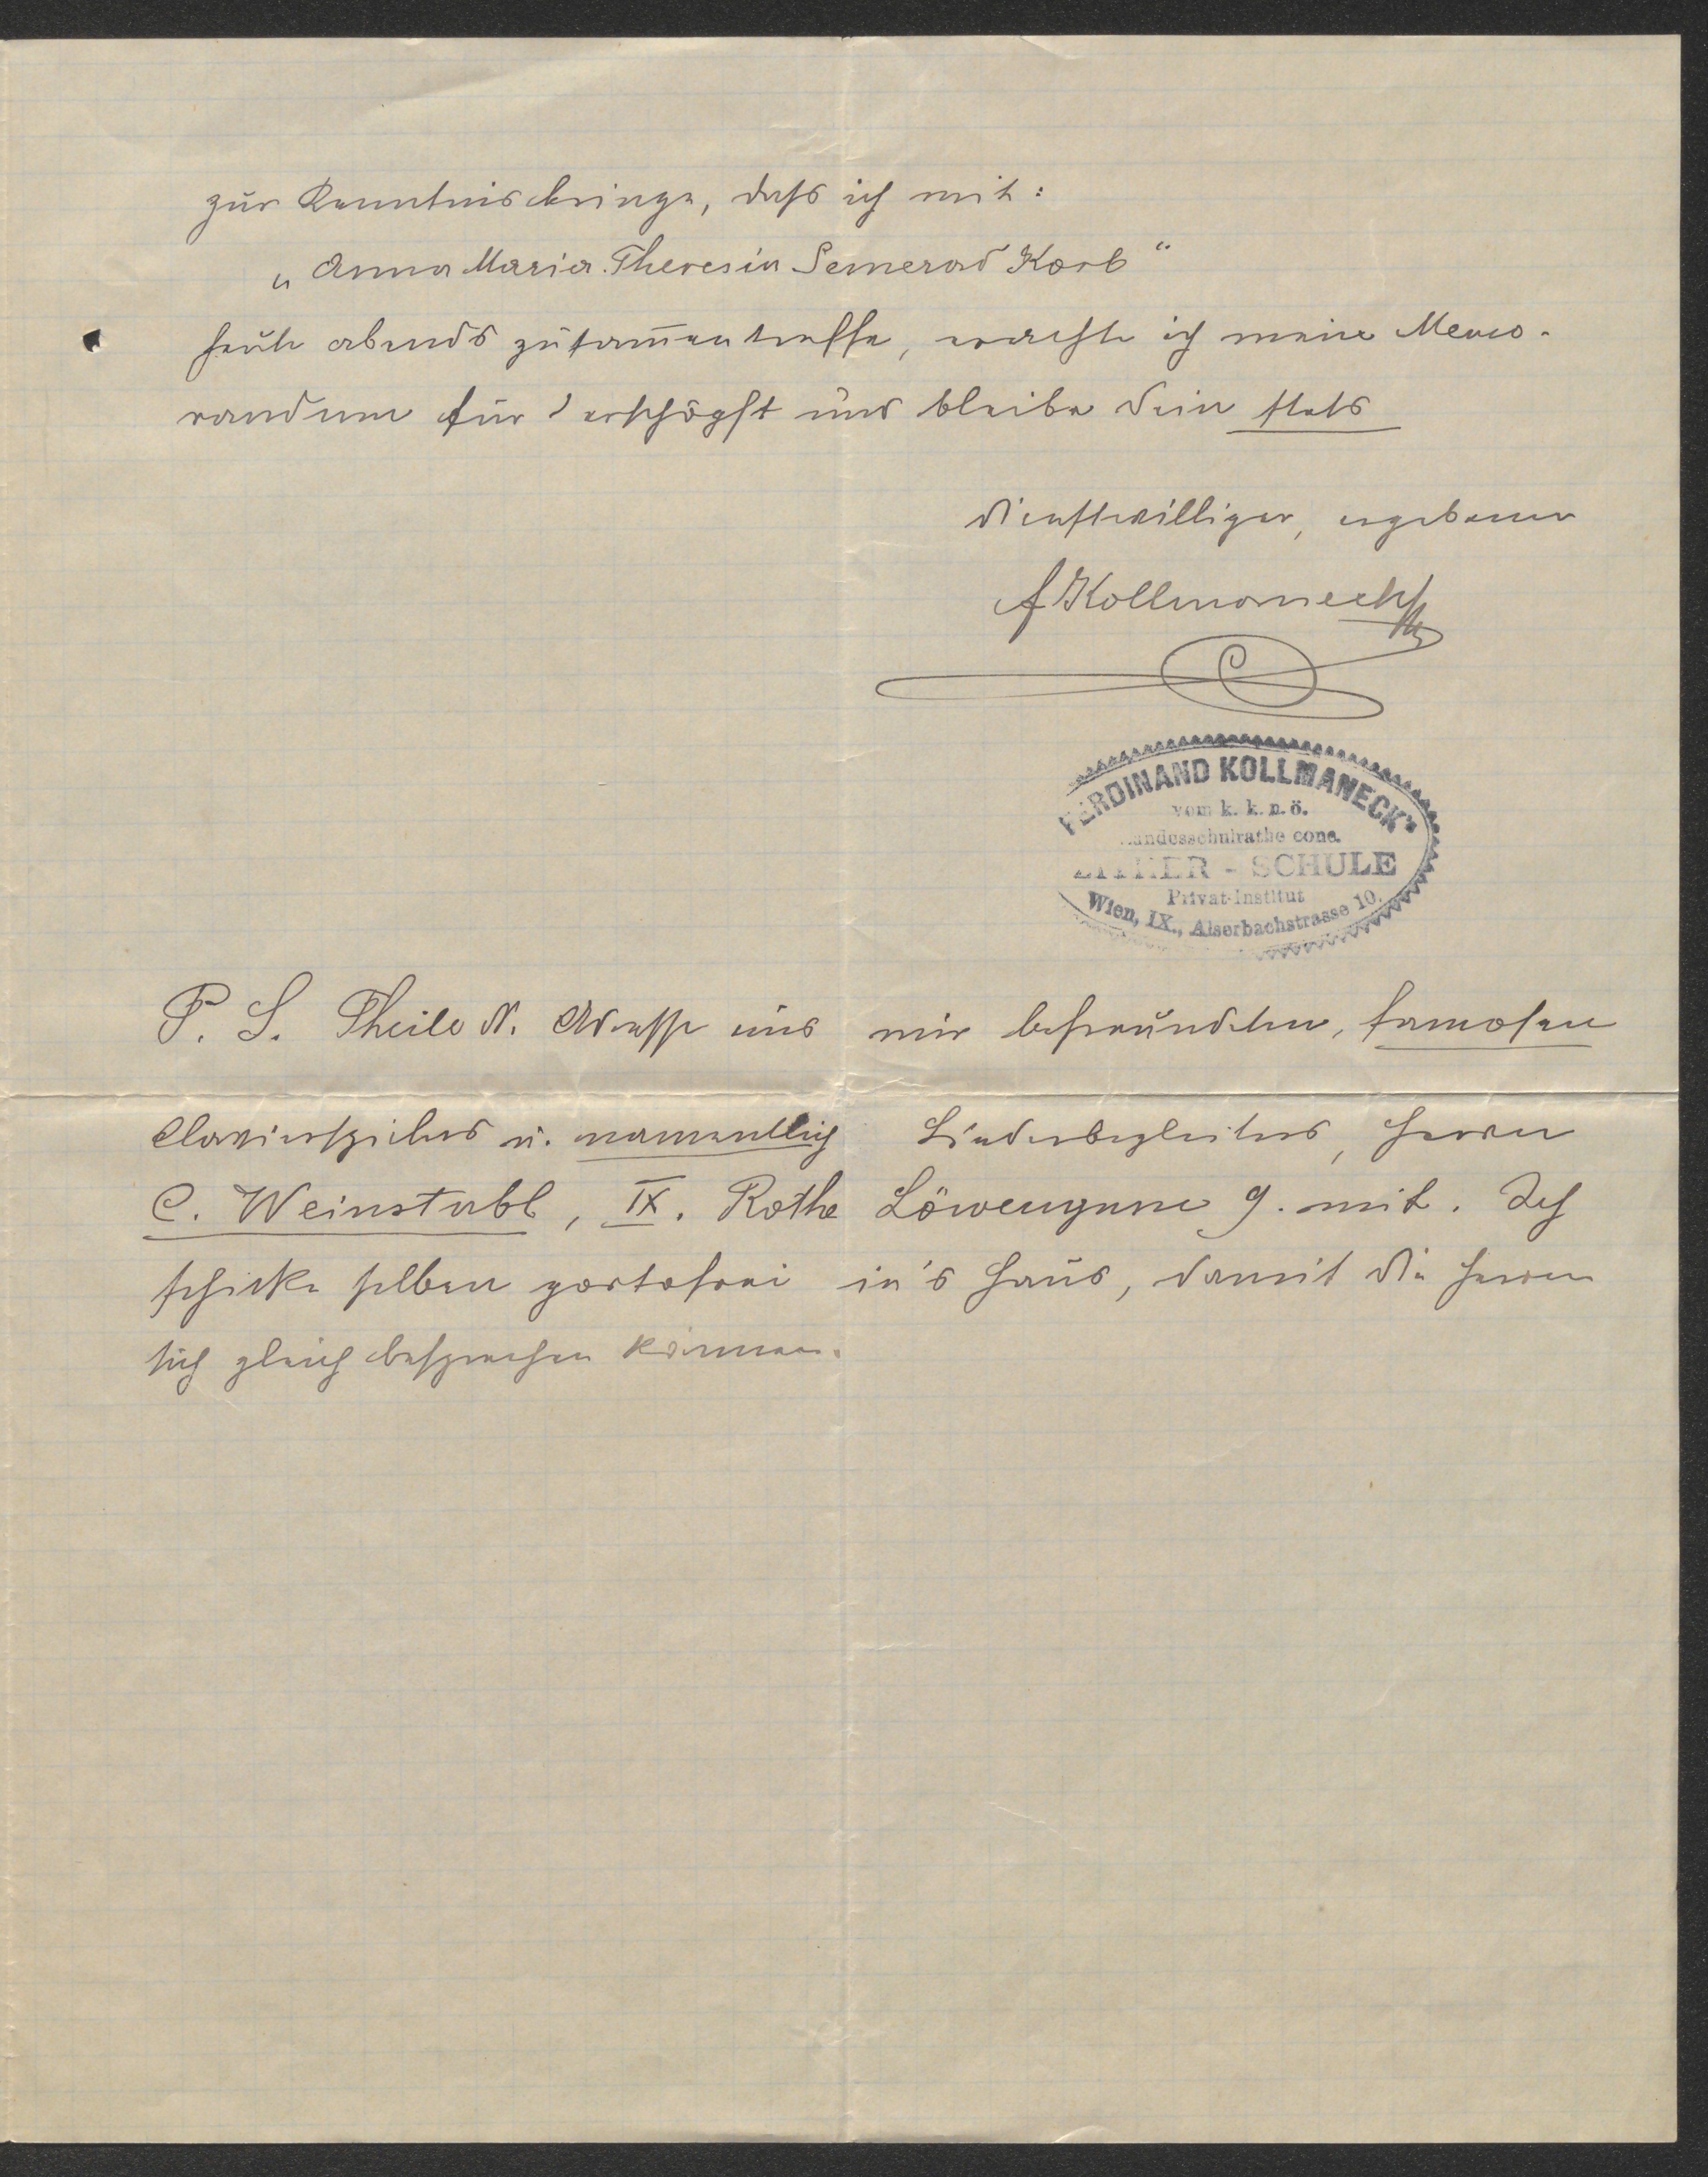 zur Kenntnis bringe, dass ich mit:
„Anna Maria Theresia Semerad Korb“
heute abends zusam̅entreffe, erachte ich meine Memo-
randum für erschöpft und bleibe Dein stets
dienstwilliger, ergebener
F Kollmaneck
FERDINAND KOLLMANECK's
vom k. k. n. ö.
Landesschulrathe conc.
ZITHER - SCHULE
Privat-Institut
Wien, IX., Alserbachstrasse 10.
P. S. Theile d. Adresse eines mir befreundeten, famosen
Clavierspielers u. namentlich Liederbegleiters, Herrn
C. Weinstabl, IX. Rothe Löwengasse 9. mit. Ich
schicke selben portofrei in's Haus, damit die Herren
sich gleich besprechen können.